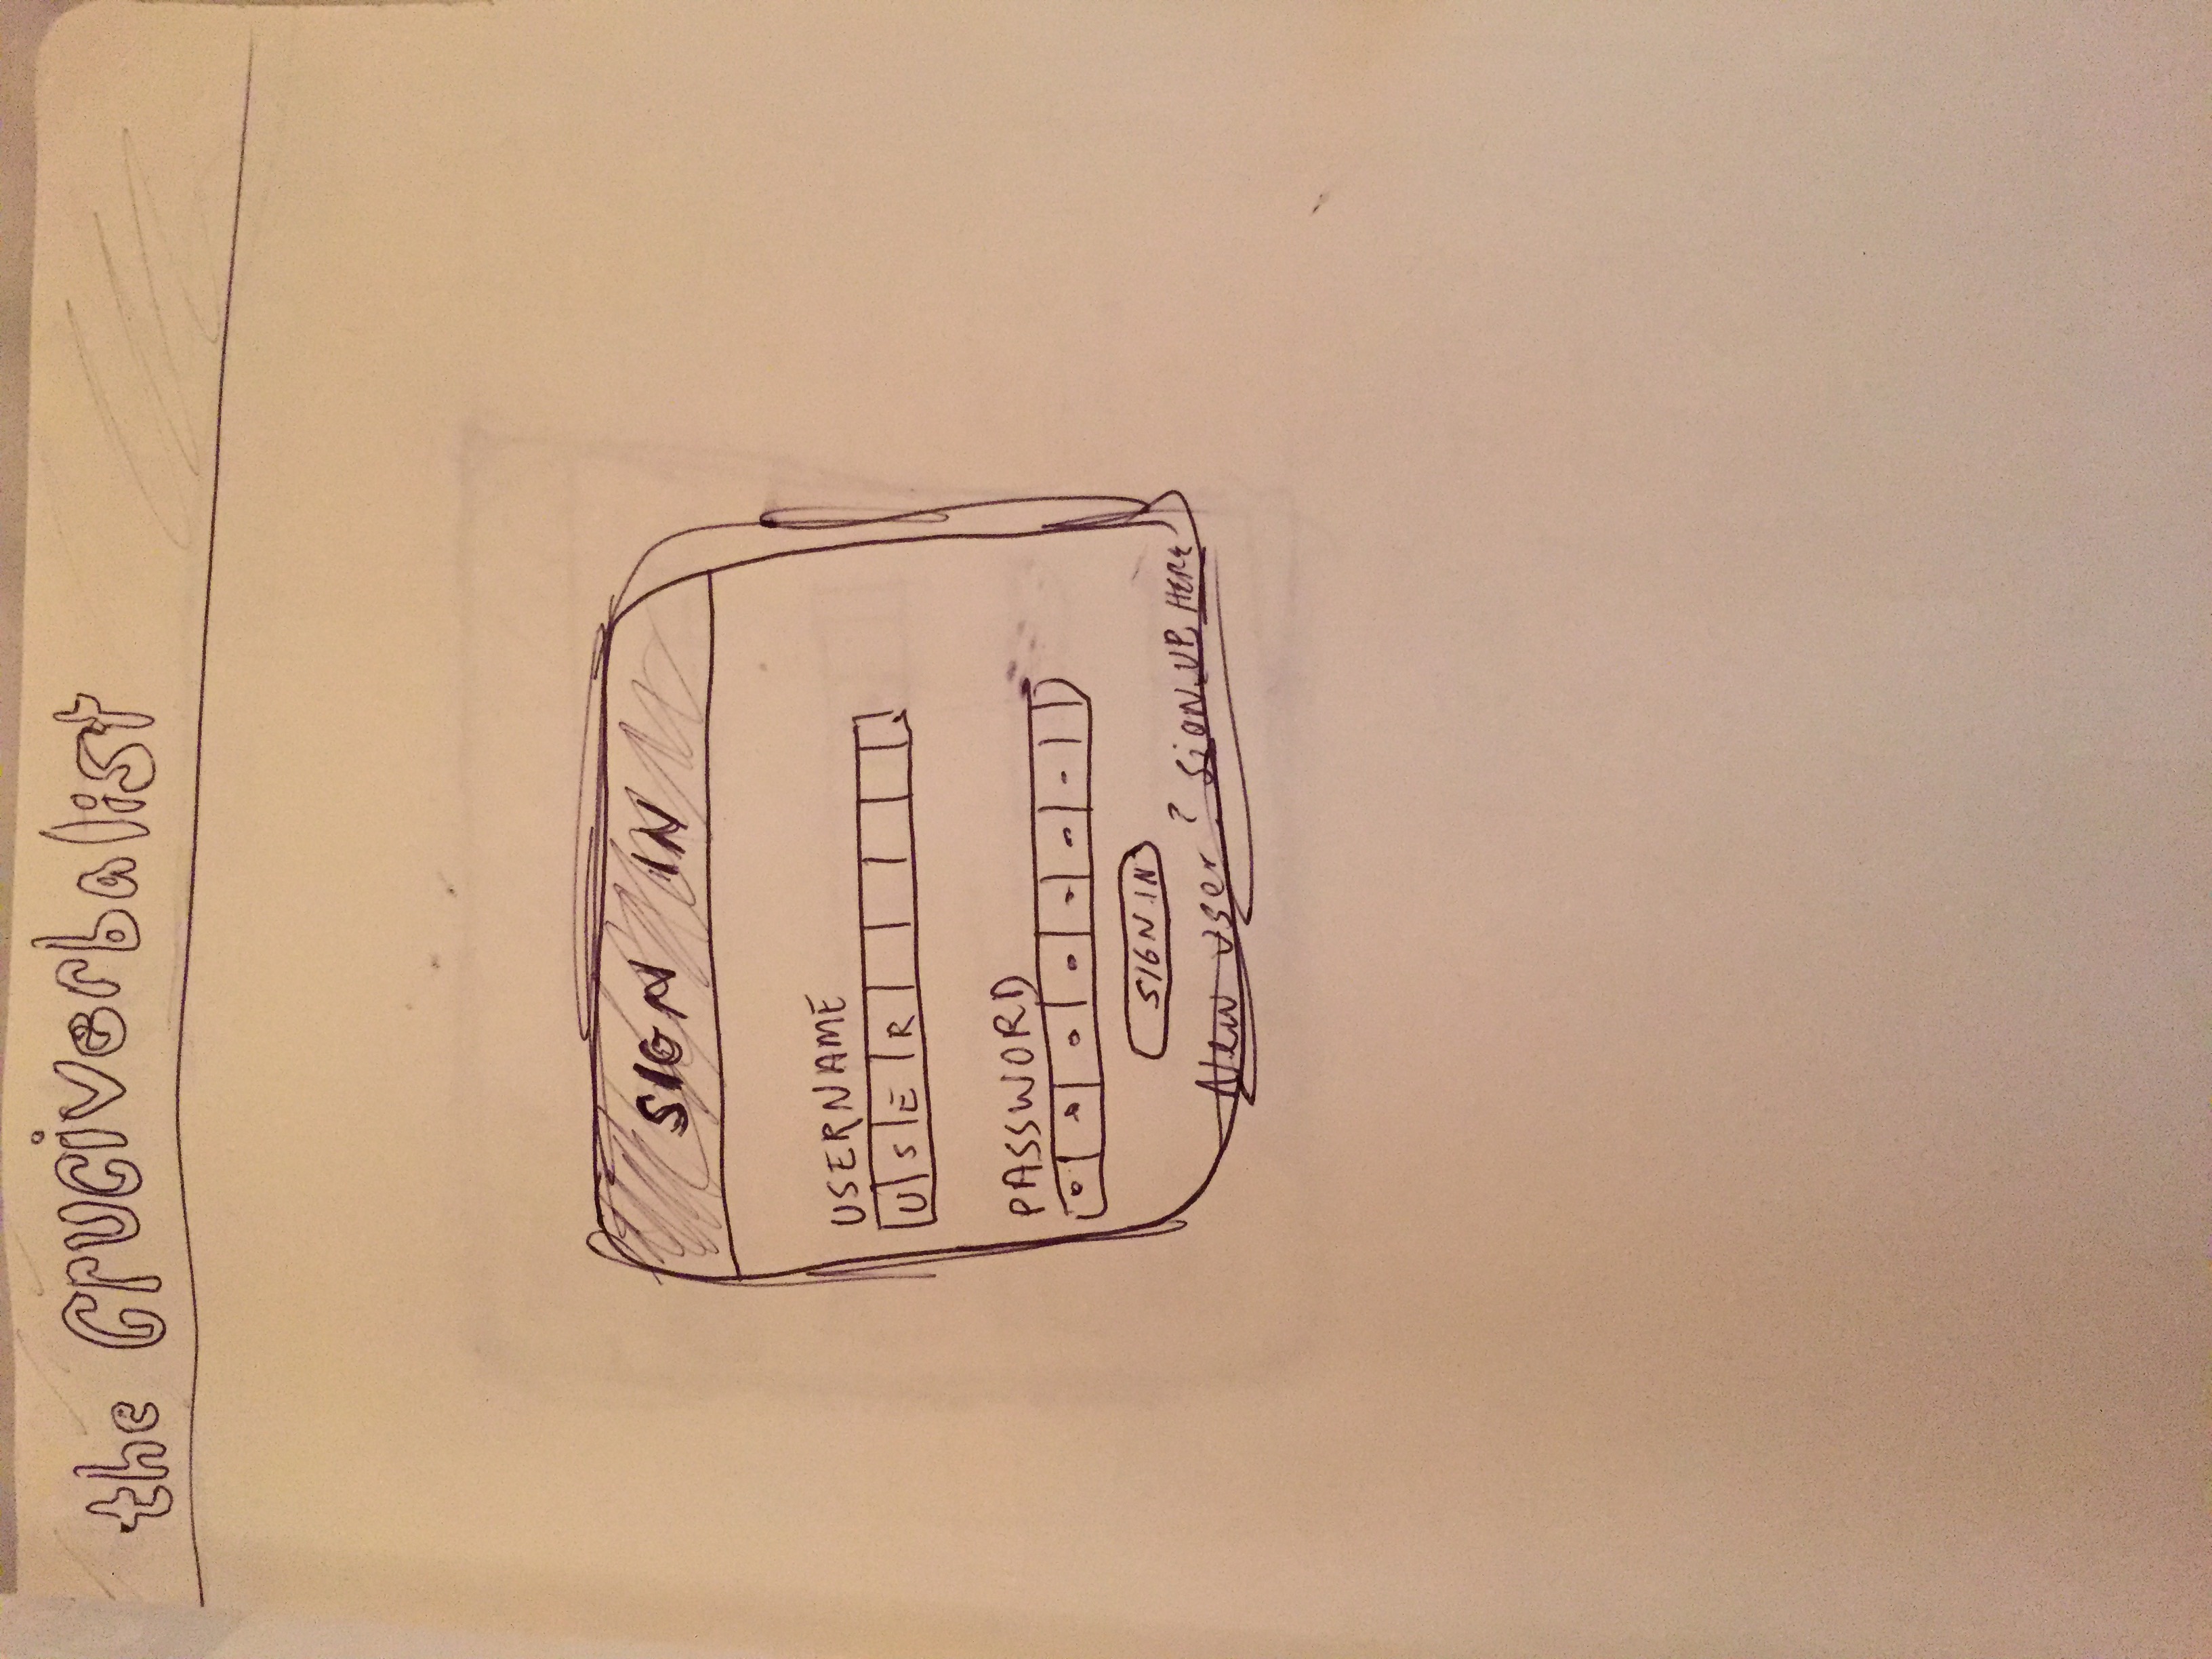 the cruciverbalist
SIGN IN
USERNAME
USER
PASSWORD
SIGN IN
New user? SIGN UP HERE